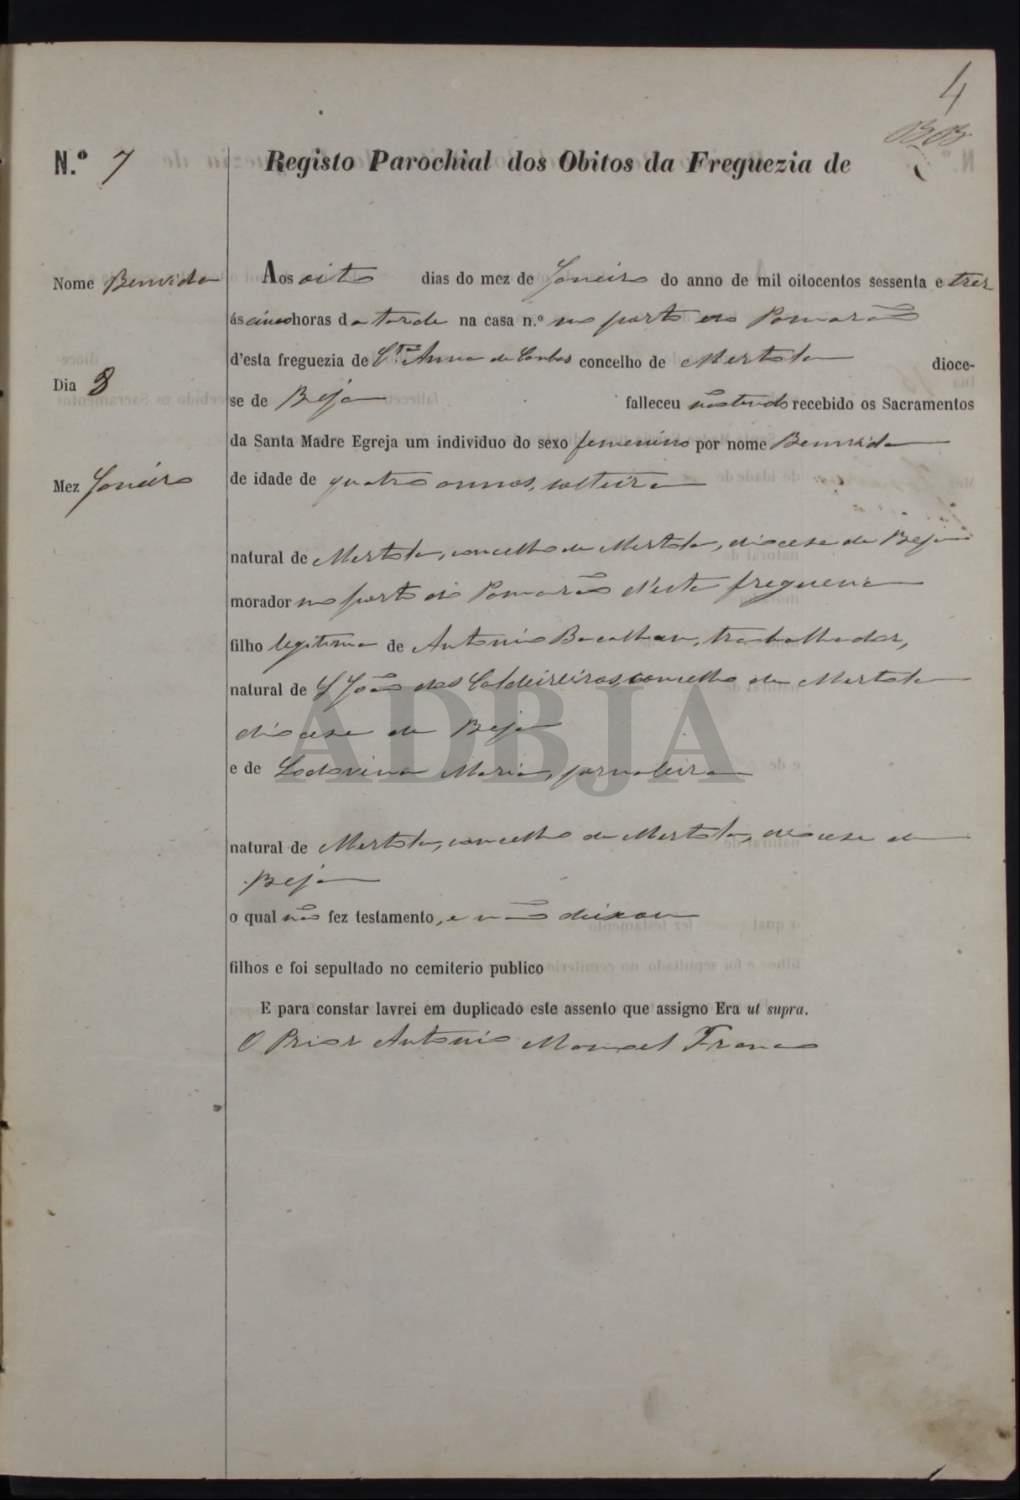 4
N.º 7 Registo Parochial dos Obitos da Freguezia de
Nome Benvida
Aos oito dias do mez de Janeiro do anno de mil oitocentos sessenta e tres
ás cinco horas da tarde na casa n.º no porto do Pomarão
d'esta freguezia de Stª Anna de Cambas concelho de Mertola dioce-
Dia 8
se de Beja falleceu não tendo recebido os Sacramentos
da Santa Madre Egreja um individuo do sexo femenino por nome Benvida
Mez Janeiro
de idade de quatro annos, solteira
natural de Mertola, concelho de Mertola, diocese de Beja
morador no porto do Pomarão d'esta freguezia
filho legitima de Antonio Bacalhau, trabalhador,
natural de S João dos Caldeireiros, concelho de Mertola
diocese de Beja
e de Lodovina Maria, jornaleira
natural de Mertola, concelho de Mertola, diocese de
Beja
o qual não fez testamento, e não deixou
filhos e foi sepultado no cemiterio publico
E para constar lavrei em duplicado este assento que assigno Era ut supra.
O Prior Antonio Manoel Franco
ADBJA